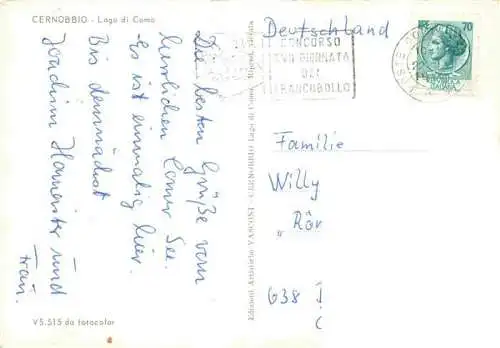 CERNOBBIO - Lago di Como
Die besten Grüße vom
herrlichen Comer See.
Es ist einmalig hier.
Bis demnächst
Joachim und
Frau.
V5.515 da fotocolor
Edizioni Artistiche VASCONI - CERNOBBIO Lago di Como -
Deutschland
CONCORSO
GIORNATA
DEL
FRANCOBOLLO
70
Familie
Willy
"Rör
638